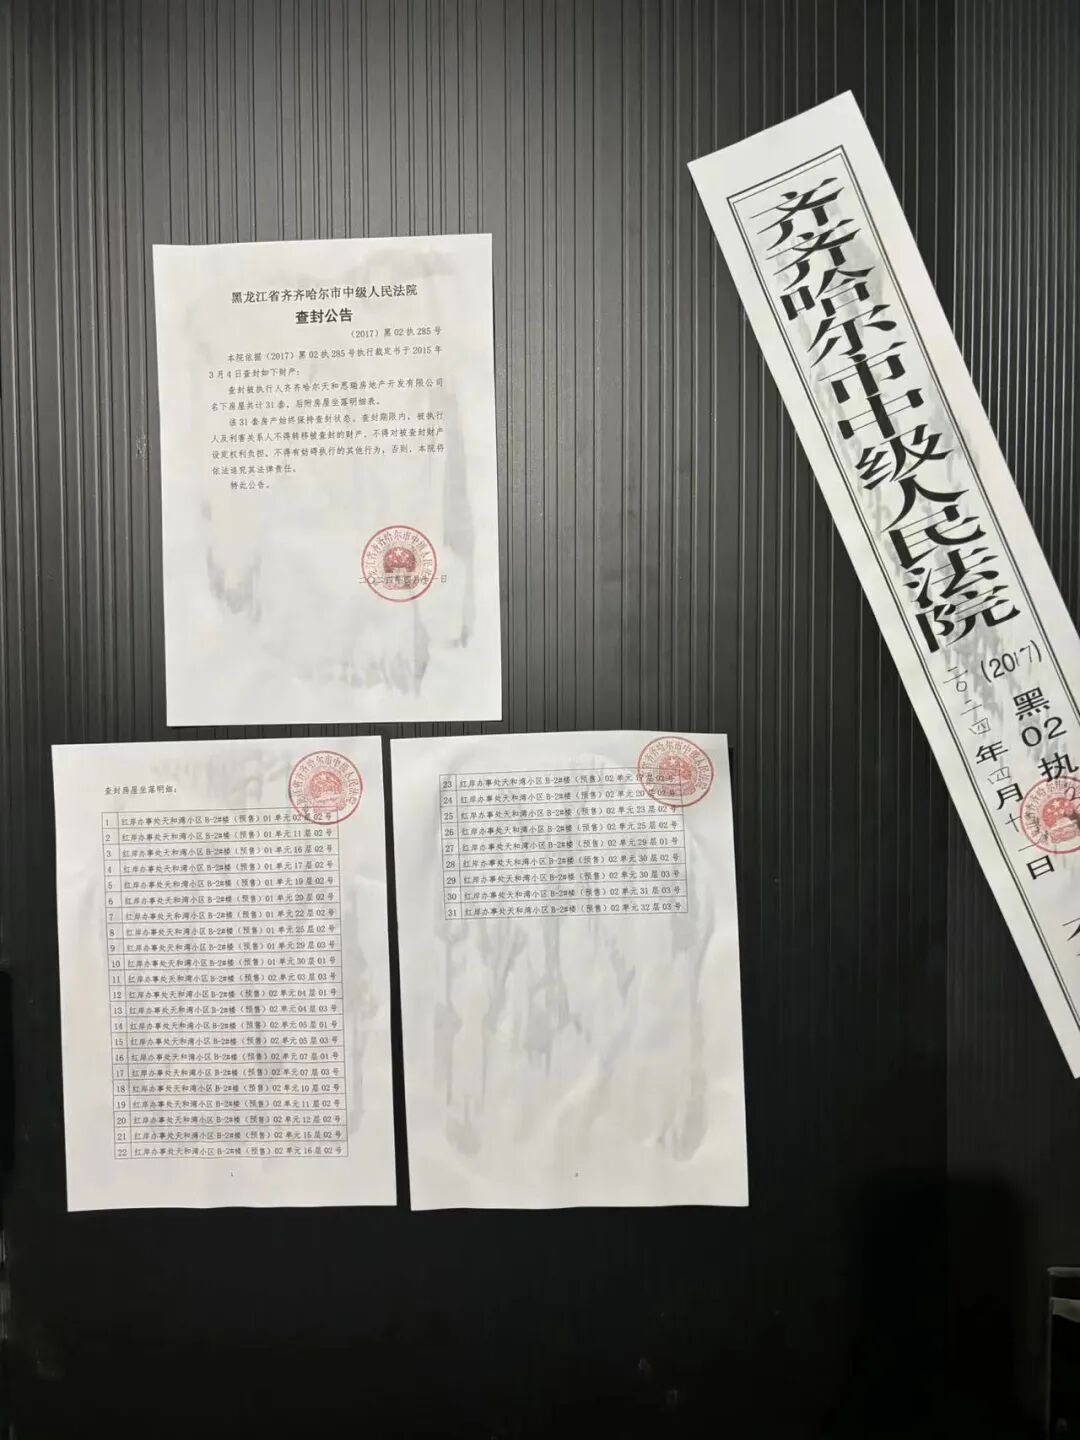 黑龙江省齐齐哈尔市中级人民法院
查封公告
（2017）黑 02 执 285 号
本院依据（2017）黑 02 执 285 号执行裁定书于 2015 年
3 月 4 日查封如下财产：
查封被执行人齐齐哈尔天和思瑞房地产开发有限公司
名下房屋共计 31 套，后附房屋坐落明细表。
该 31 套房产始终保持查封状态，查封期限内，被执行
人及利害关系人不得转移被查封的财产，不得对被查封财产
设定权利负担，不得有妨碍执行的其他行为，否则，本院将
依法追究其法律责任。
特此公告。
黑龙江省齐齐哈尔市中级人民法院
二〇二四年四月十一日
齐齐哈尔市中级人民法院
(2017) 黑 02 执
二〇二四年四月十一日
查封房屋坐落明细：
1 红岸办事处天和湾小区 B-2#楼（预售）01 单元 02 层 02 号
2 红岸办事处天和湾小区 B-2#楼（预售）01 单元 11 层 02 号
3 红岸办事处天和湾小区 B-2#楼（预售）01 单元 16 层 02 号
4 红岸办事处天和湾小区 B-2#楼（预售）01 单元 17 层 02 号
5 红岸办事处天和湾小区 B-2#楼（预售）01 单元 19 层 02 号
6 红岸办事处天和湾小区 B-2#楼（预售）01 单元 20 层 02 号
7 红岸办事处天和湾小区 B-2#楼（预售）01 单元 22 层 02 号
8 红岸办事处天和湾小区 B-2#楼（预售）01 单元 25 层 02 号
9 红岸办事处天和湾小区 B-2#楼（预售）01 单元 29 层 03 号
10 红岸办事处天和湾小区 B-2#楼（预售）01 单元 30 层 01 号
11 红岸办事处天和湾小区 B-2#楼（预售）02 单元 03 层 03 号
12 红岸办事处天和湾小区 B-2#楼（预售）02 单元 04 层 01 号
13 红岸办事处天和湾小区 B-2#楼（预售）02 单元 04 层 03 号
14 红岸办事处天和湾小区 B-2#楼（预售）02 单元 05 层 01 号
15 红岸办事处天和湾小区 B-2#楼（预售）02 单元 05 层 03 号
16 红岸办事处天和湾小区 B-2#楼（预售）02 单元 07 层 01 号
17 红岸办事处天和湾小区 B-2#楼（预售）02 单元 07 层 03 号
18 红岸办事处天和湾小区 B-2#楼（预售）02 单元 10 层 02 号
19 红岸办事处天和湾小区 B-2#楼（预售）02 单元 11 层 02 号
20 红岸办事处天和湾小区 B-2#楼（预售）02 单元 12 层 02 号
21 红岸办事处天和湾小区 B-2#楼（预售）02 单元 15 层 02 号
22 红岸办事处天和湾小区 B-2#楼（预售）02 单元 16 层 02 号
1
23 红岸办事处天和湾小区 B-2#楼（预售）02 单元 17 层 02 号
24 红岸办事处天和湾小区 B-2#楼（预售）02 单元 20 层 02 号
25 红岸办事处天和湾小区 B-2#楼（预售）02 单元 23 层 02 号
26 红岸办事处天和湾小区 B-2#楼（预售）02 单元 25 层 02 号
27 红岸办事处天和湾小区 B-2#楼（预售）02 单元 29 层 01 号
28 红岸办事处天和湾小区 B-2#楼（预售）02 单元 30 层 02 号
29 红岸办事处天和湾小区 B-2#楼（预售）02 单元 30 层 03 号
30 红岸办事处天和湾小区 B-2#楼（预售）02 单元 31 层 03 号
31 红岸办事处天和湾小区 B-2#楼（预售）02 单元 32 层 03 号
2